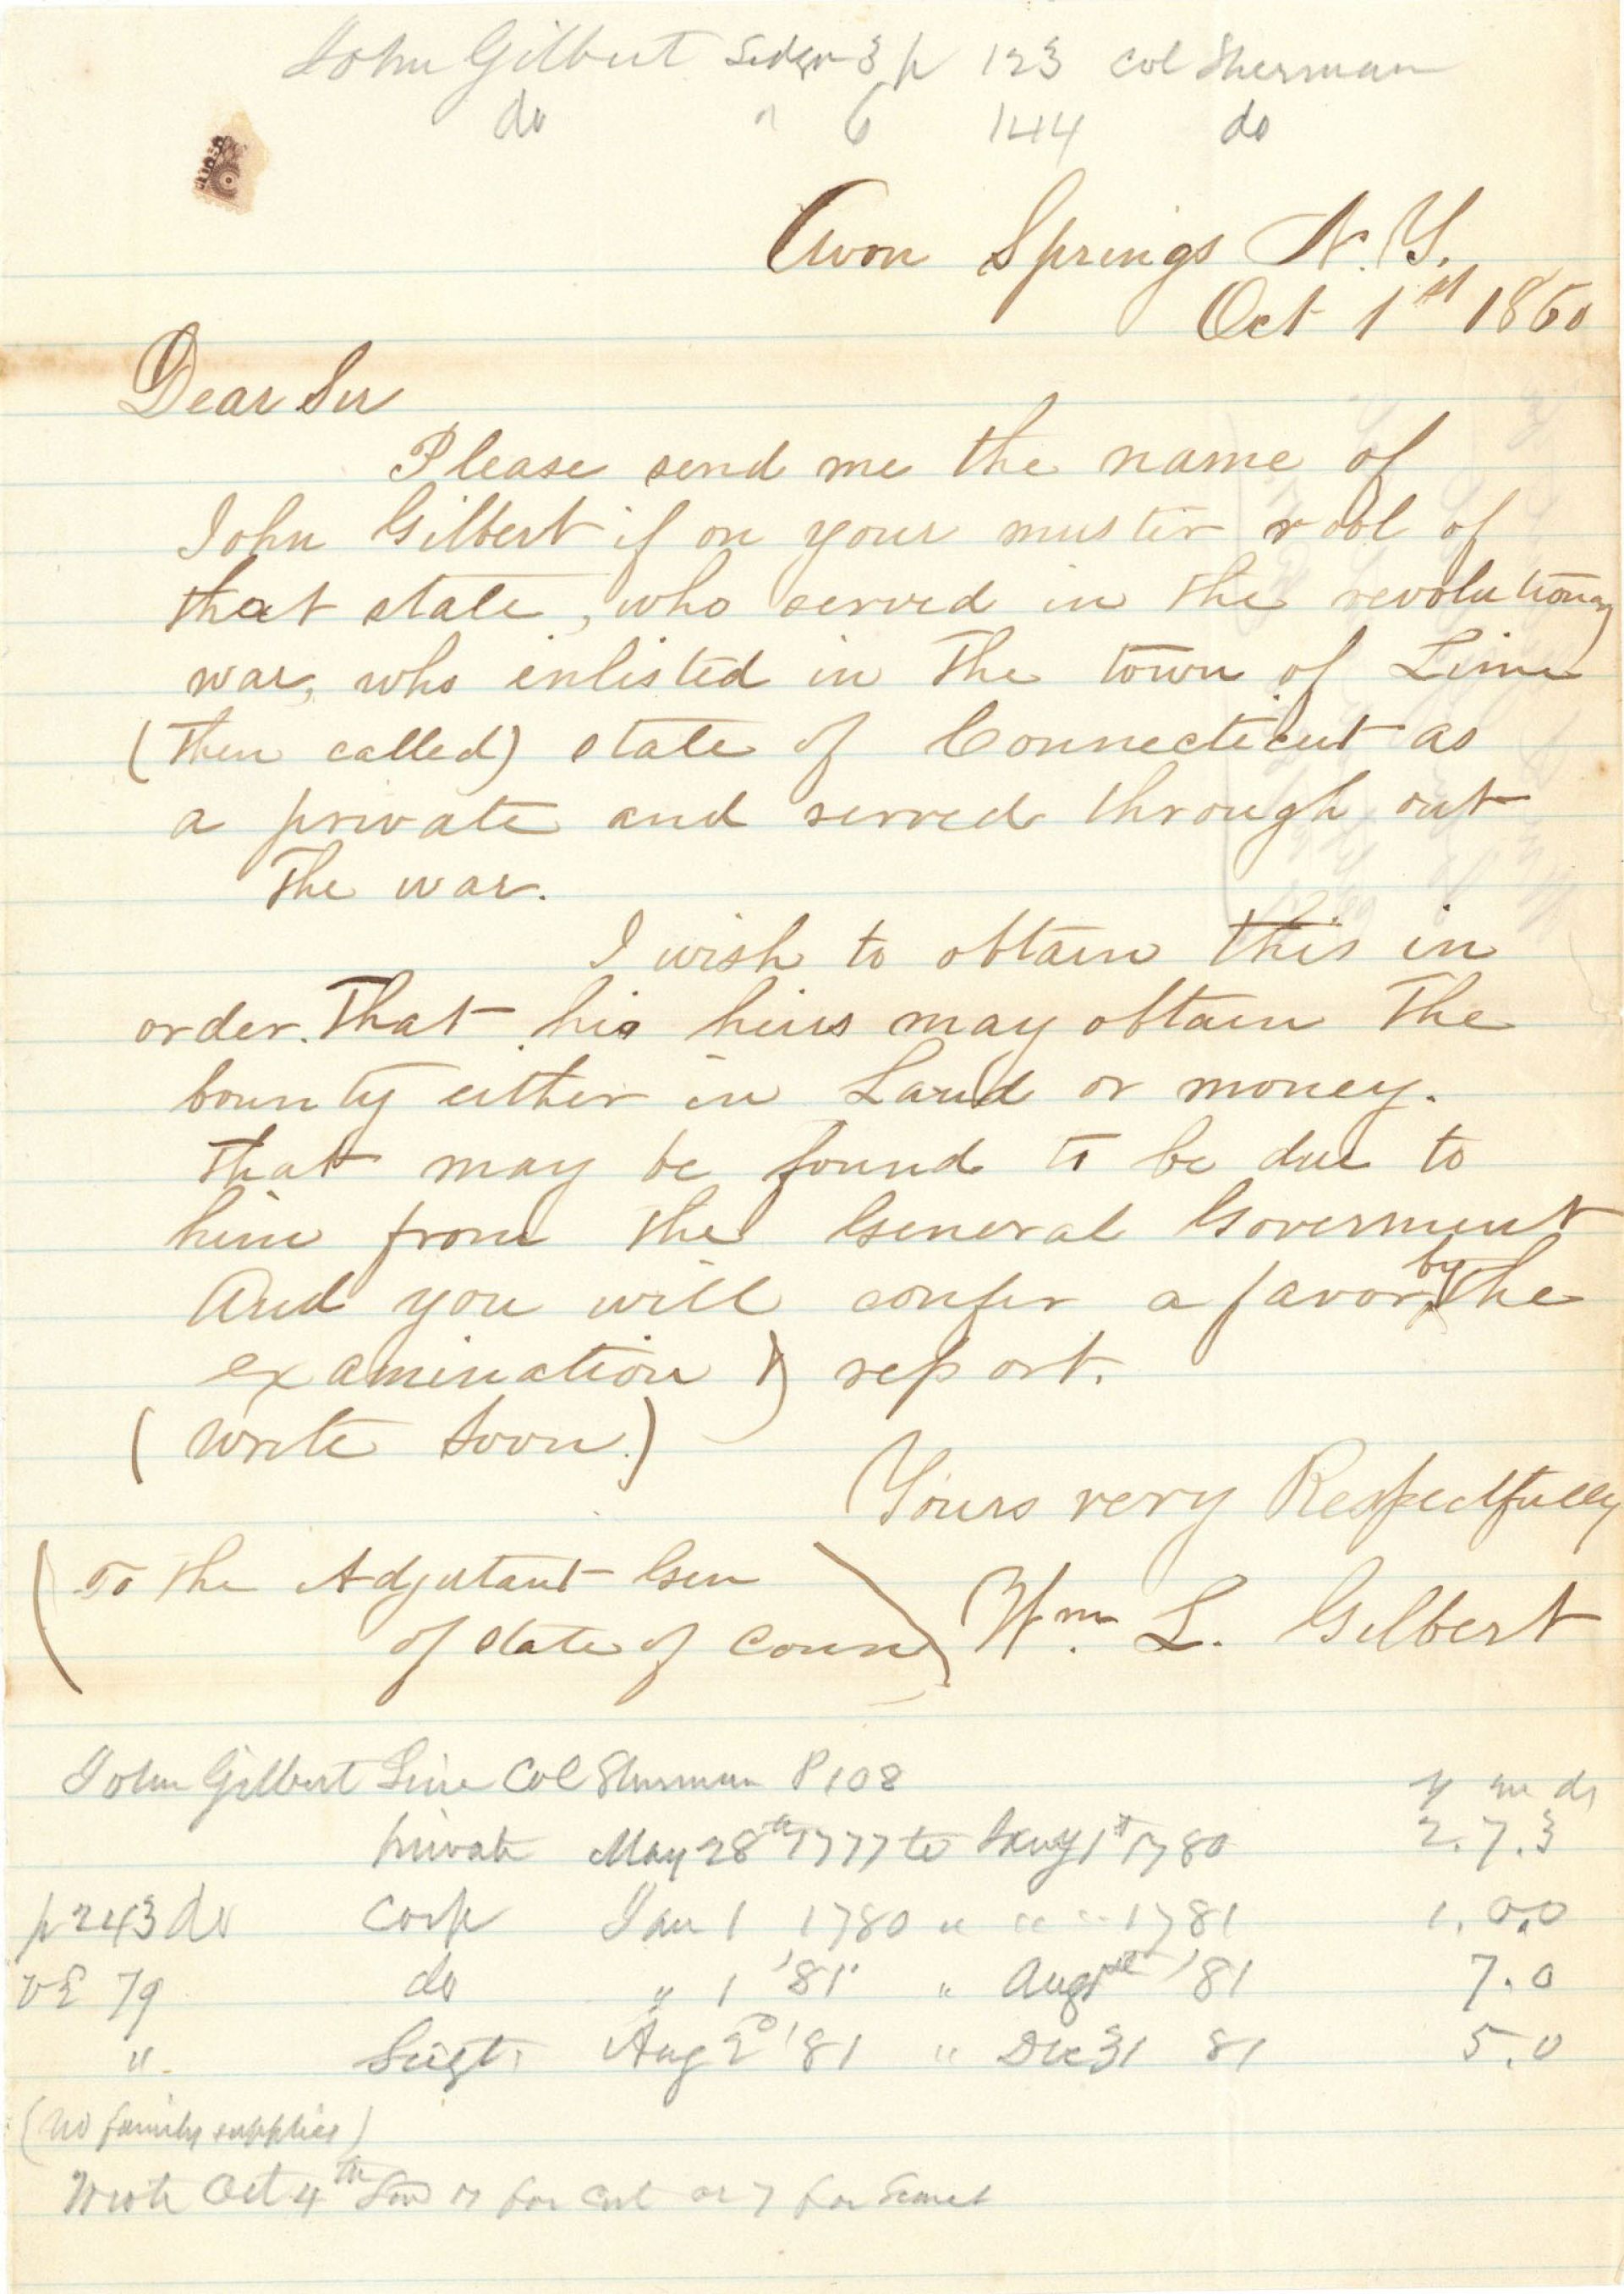 John Gilbert 3 p 123 Col Sherman
do " 6 144 do
Avon Springs N.Y.
Oct 1st 1860
Dear Sir
Please send me the name of
John Gilbert if on your muster rool of
that state, who served in the revolutionary
war, who enlisted in the town of Lime
(then called) state of Connecticut as
a private and served through out
the war.
I wish to obtain this in
order. that his heirs may obtain the
bounty either in Land or money.
that may be found to be due to
him from the General Goverment
And you will confer a favor by the
examination & report.
(write soon.)
Yours very Respectfully
(To the Adjutant Gen
of state of Conn) Wm. L. Gilbert
John Gilbert Line Col Sherman P 108 y m ds
private May 28th 1777 to Jany 1st 1780 2.7.3
p 243 do Corp Jan 1 1780 " " " 1781 1.0.0
79 do " 1 '81 " Aug '81 7.0
" Sergt. Aug 2d '81 " Dec 31 81 5.0
(no family supplies)
Wrote Oct 4th for or for